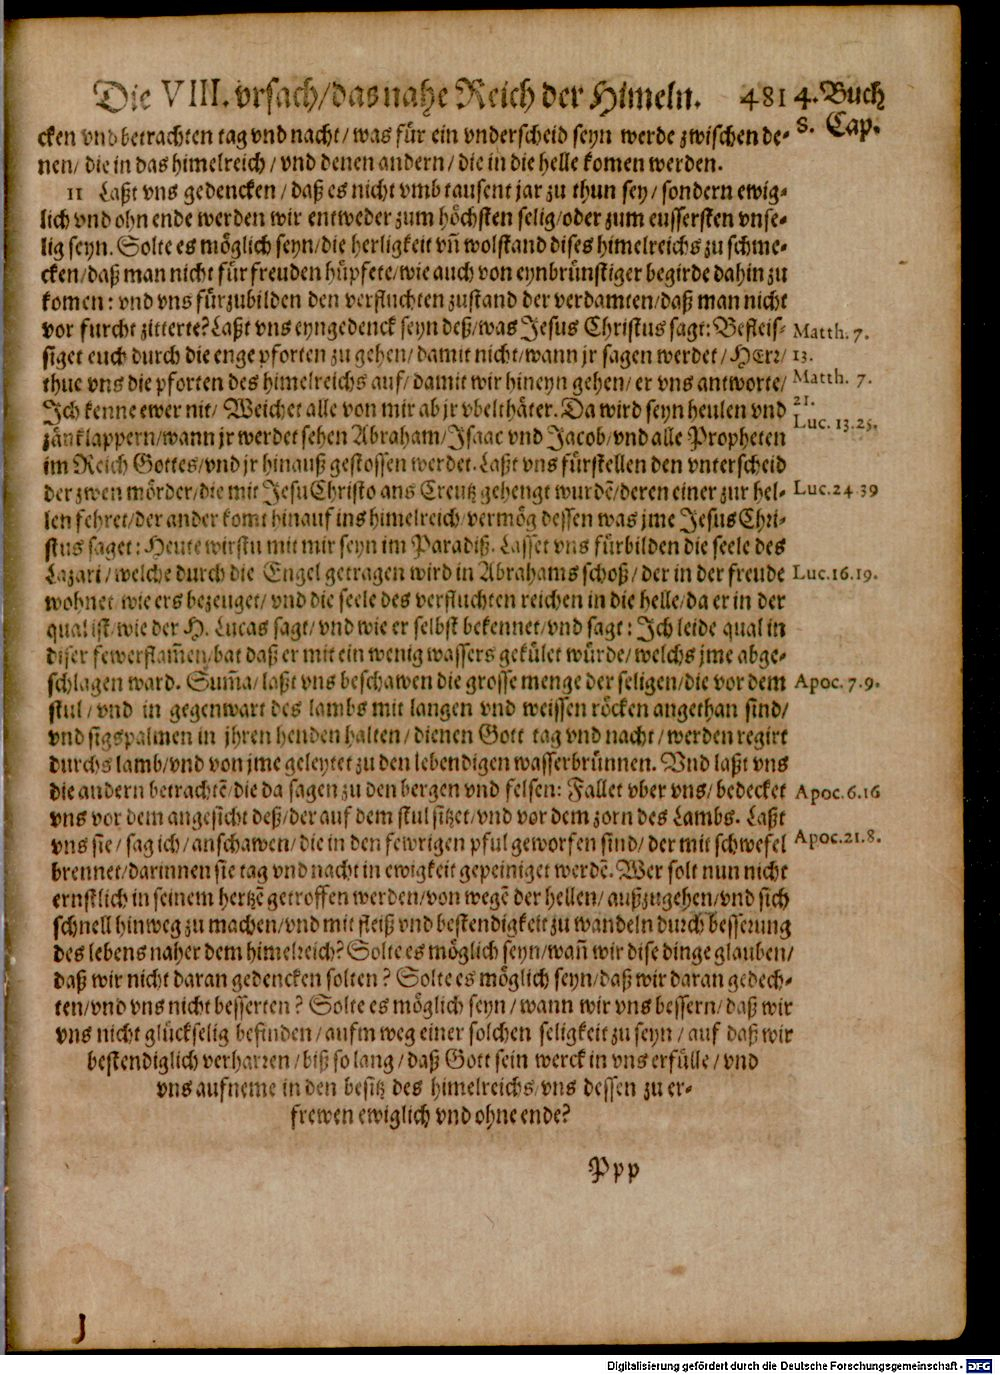 Die VIII. vrsach/das nahe Reich der Himeln. 481 4. Buch
8. Cap.
cken vnd betrachten tag vnd nacht/ was für ein vnderscheid seyn werde zwischen de-
nen/ die in das himelreich/ vnd denen andern/ die in die helle komen werden.
11 Laßt vns gedencken/ daß es nicht vmb tausent jar zu thun sey/ sondern ewig-
lich vnd ohn ende werden wir entweder zum höchsten selig/oder zum eussersten vnse-
lig seyn. Solte es möglich seyn/die herligkeit vñ wolstand dises himelreichs zu schme-
cken/daß man nicht für freuden hüpfete/wie auch von eynbrünstiger begirde dahin zu
komen: vnd vns fürzubilden den verfluchten zustand der verdamten/daß man nicht
vor furcht zitterte? Laßt vns eyngedenck seyn deß/was Jesus Christus sagt: Befleis-
siget euch durch die enge pforten zu gehen/ damit nicht/wann jr sagen werdet/ HErr/
thue vns die pforten des himelreichs auf/ damit wir hineyn gehen/ er vns antworte/
Ich kenne ewer nit/ Weichet alle von mir ab jr vbelthäter. Da wird seyn heulen vnd
zänklappern/wann jr werdet sehen Abraham/Isaac vnd Jacob/vnd alle Propheten
im Reich Gottes/vnd jr hinauß gestossen werdet. Laßt vns fürstellen den vnterscheid
der zwen mörder/die mit Jesu Christo ans Creutz gehengt wurdẽ/deren einer zur hel-
len fehret/der ander komt hinauf ins himelreich/vermög dessen was jme Jesus Chri-
stus saget: Heute wirstu mit mir seyn im Paradiß. Lasset vns fürbilden die seele des
Lazari/welche durch die Engel getragen wird in Abrahams schoß/ der in der freude
wohnet wie ers bezeuget/ vnd die seele des verfluchten reichen in die helle/da er in der
qual ist/wie der H. Lucas sagt/ vnd wie er selbst bekennet/vnd sagt: Ich leide qual in
diser fewerflam̃en/bat daß er mit ein wenig wassers gekület würde/welchs jme abge-
schlagen ward. Sum̃a/laßt vns beschawen die grosse menge der seligen/die vor dem
stul/ vnd in gegenwart des lambs mit langen vnd weissen röcken angethan sind/
vnd sigspalmen in jhren henden halten/ dienen Gott tag vnd nacht/ werden regirt
durchs lamb/vnd von jme geleytet zu den lebendigen wasserbrünnen. Vnd laßt vns
die andern betrachtẽ/die da sagen zu den bergen vnd felsen: Fallet vber vns/ bedecket
vns vor dem angesicht deß/der auf dem stul sitzet/vnd vor dem zorn des Lambs. Laßt
vns sie/ sag ich/anschawen/ die in den fewrigen pful geworfen sind/ der mit schwefel
brennet/darinnen sie tag vnd nacht in ewigkeit gepeiniget werdẽ. Wer solt nun nicht
ernstlich in seinem hertzẽ getroffen werden/von wegẽ der hellen/ außzugehen/vnd sich
schnell hinweg zu machen/vnd mit fleiß vnd bestendigkeit zu wandeln durch besserung
des lebens naher dem himelreich? Solte es möglich seyn/wañ wir dise dinge glauben/
daß wir nicht daran gedencken solten? Solte es möglich seyn/daß wir daran gedech-
ten/vnd vns nicht besserten? Solte es möglich seyn/wann wir vns bessern/daß wir
vns nicht glückselig befinden/aufm weg einer solchen seligkeit zu seyn/ auf daß wir
bestendiglich verharren/biß so lang/daß Gott sein werck in vns erfülle/ vnd
vns aufneme in den besitz des himelreichs/vns dessen zu er-
frewen ewiglich vnd ohne ende?
Matth. 7.
13.
Matth. 7.
21.
Luc. 13.25.
Luc. 24 39
Luc. 16. 19.
Apoc. 7. 9.
Apoc. 6. 16
Apoc. 21. 8.
Ppp
Digitalisierung gefördert durch die Deutsche Forschungsgemeinschaft - DFG